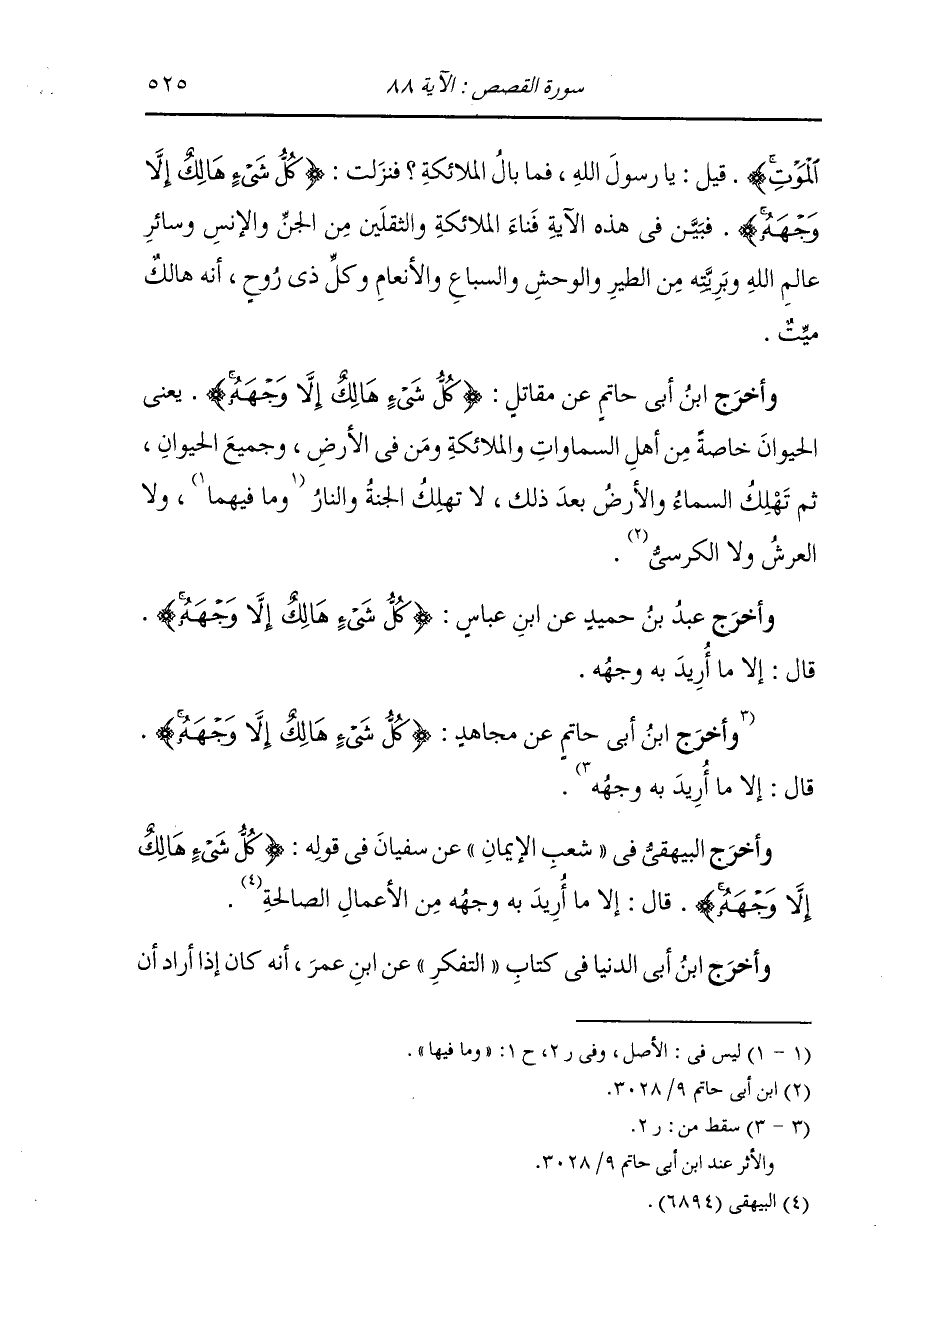 سورة القصص : الآية ٨٨ ٥٢٥
ٱلْمَوْتِۗ﴾ . قيل : يا رسولَ اللهِ ، فما بالُ الملائكةِ ؟ فنزَلت : ﴿كُلُّ شَىْءٍ هَالِكٌ إِلَّا
وَجْهَهُۥۚ﴾ . فبَيَّن فى هذه الآيةِ فَناءَ الملائكةِ والثقلَين مِن الجنِّ والإنسِ وسائرِ
عالمِ اللهِ وبَرِيَّتِه مِن الطيرِ والوحشِ والسباعِ والأنعامِ وكلِّ ذى رُوحٍ ، أنه هالكٌ
ميِّتٌ .
وأخرَج ابنُ أبى حاتمٍ عن مقاتلٍ : ﴿كُلُّ شَىْءٍ هَالِكٌ إِلَّا وَجْهَهُۥۚ﴾ . يعنى
الحيوانَ خاصةً مِن أهلِ السماواتِ والملائكةِ ومَن فى الأرضِ ، وجميعَ الحيوانِ ،
ثم تَهْلِكُ السماءُ والأرضُ بعدَ ذلك ، لا تهلِكُ الجنةُ والنارُ (١وما فيهما١) ، ولا
العرشُ ولا الكرسىُّ(٢) .
وأخرَج عبدُ بنُ حميدٍ عن ابنِ عباسٍ : ﴿كُلُّ شَىْءٍ هَالِكٌ إِلَّا وَجْهَهُۥۚ﴾ .
قال : إلا ما أُريدَ به وجهُه .
(٣وأخرَج ابنُ أبى حاتمٍ عن مجاهدٍ : ﴿كُلُّ شَىْءٍ هَالِكٌ إِلَّا وَجْهَهُۥۚ﴾ .
قال : إلا ما أُريدَ به وجهُه٣) .
وأخرَج البيهقىُّ فى « شعبِ الإيمانِ » عن سفيانَ فى قولِه : ﴿كُلُّ شَىْءٍ هَالِكٌ
إِلَّا وَجْهَهُۥۚ﴾ . قال : إلا ما أُريدَ به وجهُه مِن الأعمالِ الصالحةِ(٤) .
وأخرَج ابنُ أبى الدنيا فى كتابِ « التفكرِ » عن ابنِ عمرَ ، أنه كان إذا أراد أن
(١ - ١) ليس فى : الأصل ، وفى ر ٢، ح ١: « وما فيها » .
(٢) ابن أبى حاتم ٩/ ٣٠٢٨.
(٣ - ٣) سقط من : ر ٢.
والأثر عند ابن أبى حاتم ٩/ ٣٠٢٨.
(٤) البيهقى (٦٨٩٤) .